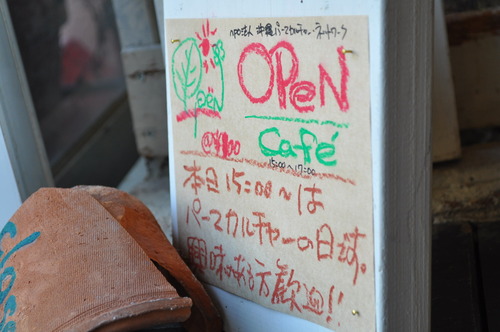 NPO法人 沖縄パーマカルチャーネットワーク
OPEN
OPeN
Café
15:00〜17:00
本日15:00〜は
パーマカルチャーの日
興味のある方歓迎!!